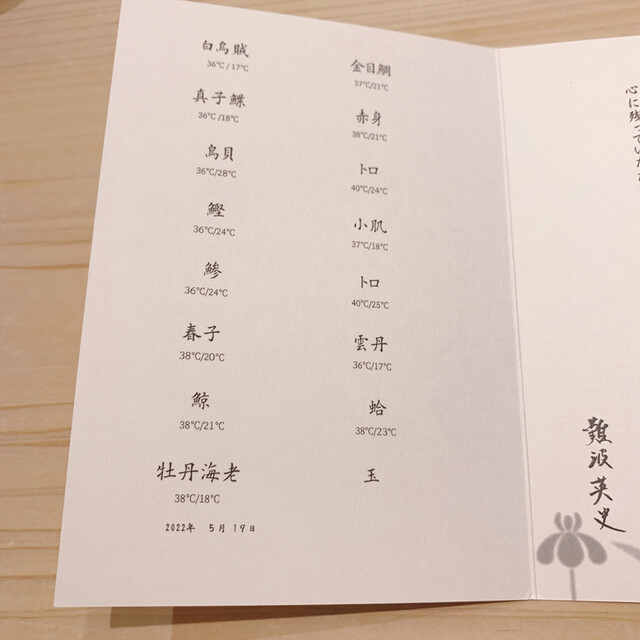 白烏賊
36℃/17℃
真子鰈
36℃/18℃
鳥貝
36℃/28℃
鰹
36℃/24℃
鯵
36℃/24℃
春子
38℃/20℃
鯨
38℃/21℃
牡丹海老
38℃/18℃
2022年 5月 19日
金目鯛
37℃/21℃
赤身
38℃/21℃
トロ
40℃/24℃
小肌
37℃/18℃
トロ
40℃/25℃
雲丹
36℃/17℃
蛤
38℃/23℃
玉
心に残っていただ
難波英史